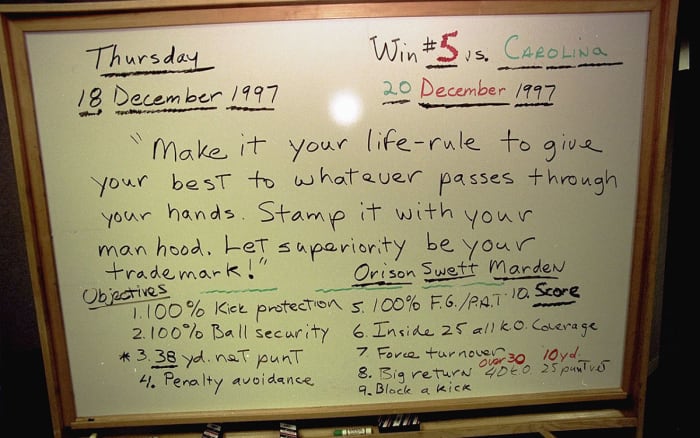 Thursday
18 December 1997
Win #5 vs. CAROLINA
20 December 1997
"Make it your life-rule to give
your best to whatever passes through
your hands. Stamp it with your
manhood. Let superiority be your
trademark!"
Orison Swett Marden
Objectives
1. 100% Kick protection
2. 100% Ball security
* 3. 38 yd. net punt
4. Penalty avoidance
5. 100% F.G./P.A.T.
6. Inside 25 all K.O. Coverage
7. Force turnover
8. Big return over 30 40 K.O 10yd. 25 punt
9. Block a kick
10. Score